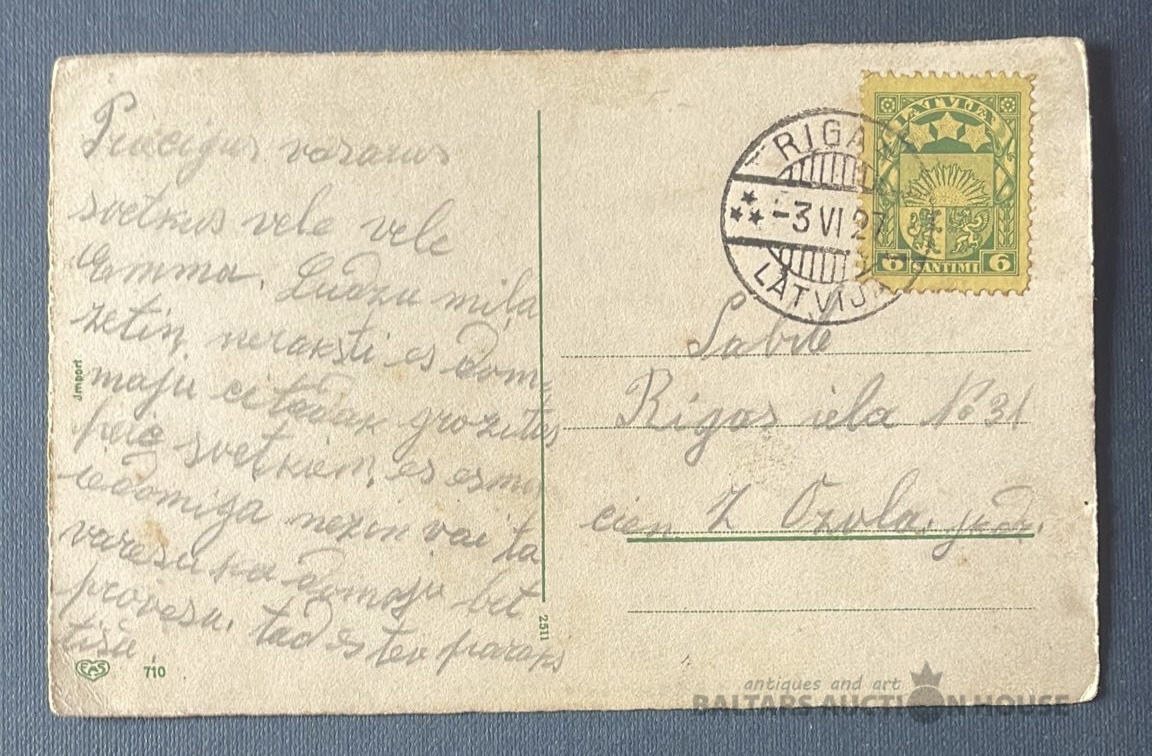 Priecigus vasarus
svetkus vele vele
Emma. Ludzu miļa
Zetiņ neraksti es dom=
maju citadak grozities
peic svetkiem, es esmu
iedomiga nezin vai ta
varesu ka domaju bet
provesu. tad es tev paraks
tišu
Import
EAS
710
2511
RIGA
-3 VI 27
LATVIJA
LATVIJA
6 SANTIMI 6
Sabile
Rigas iela № 31
cien. Z Ozola. jndz.
antiques and art
BALTARS AUCTION HOUSE